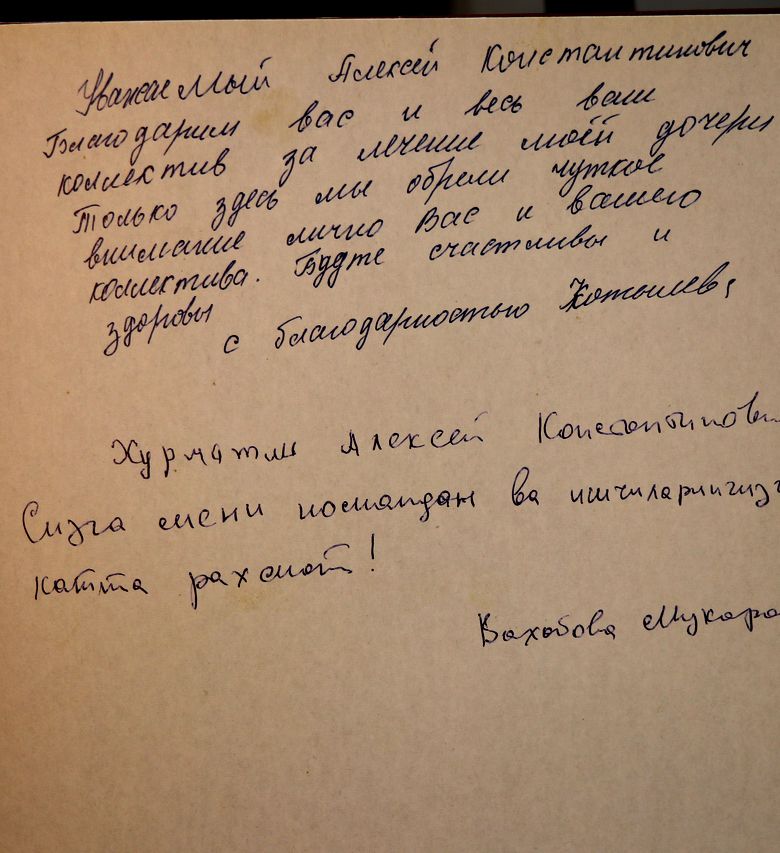 Уважаемый Алексей Константинович
Благодарим вас и весь ваш
коллектив за лечение моей дочери
Только здесь мы обрели чуткое
внимание лично Вас и вашего
коллектива. Будте счастливы и
здоровы
с благодарностью
Хурматли Алексей Константинови
Сизга мени номаидан ва ишчиларингизг
катта рахмат!
Вахобова Мукара